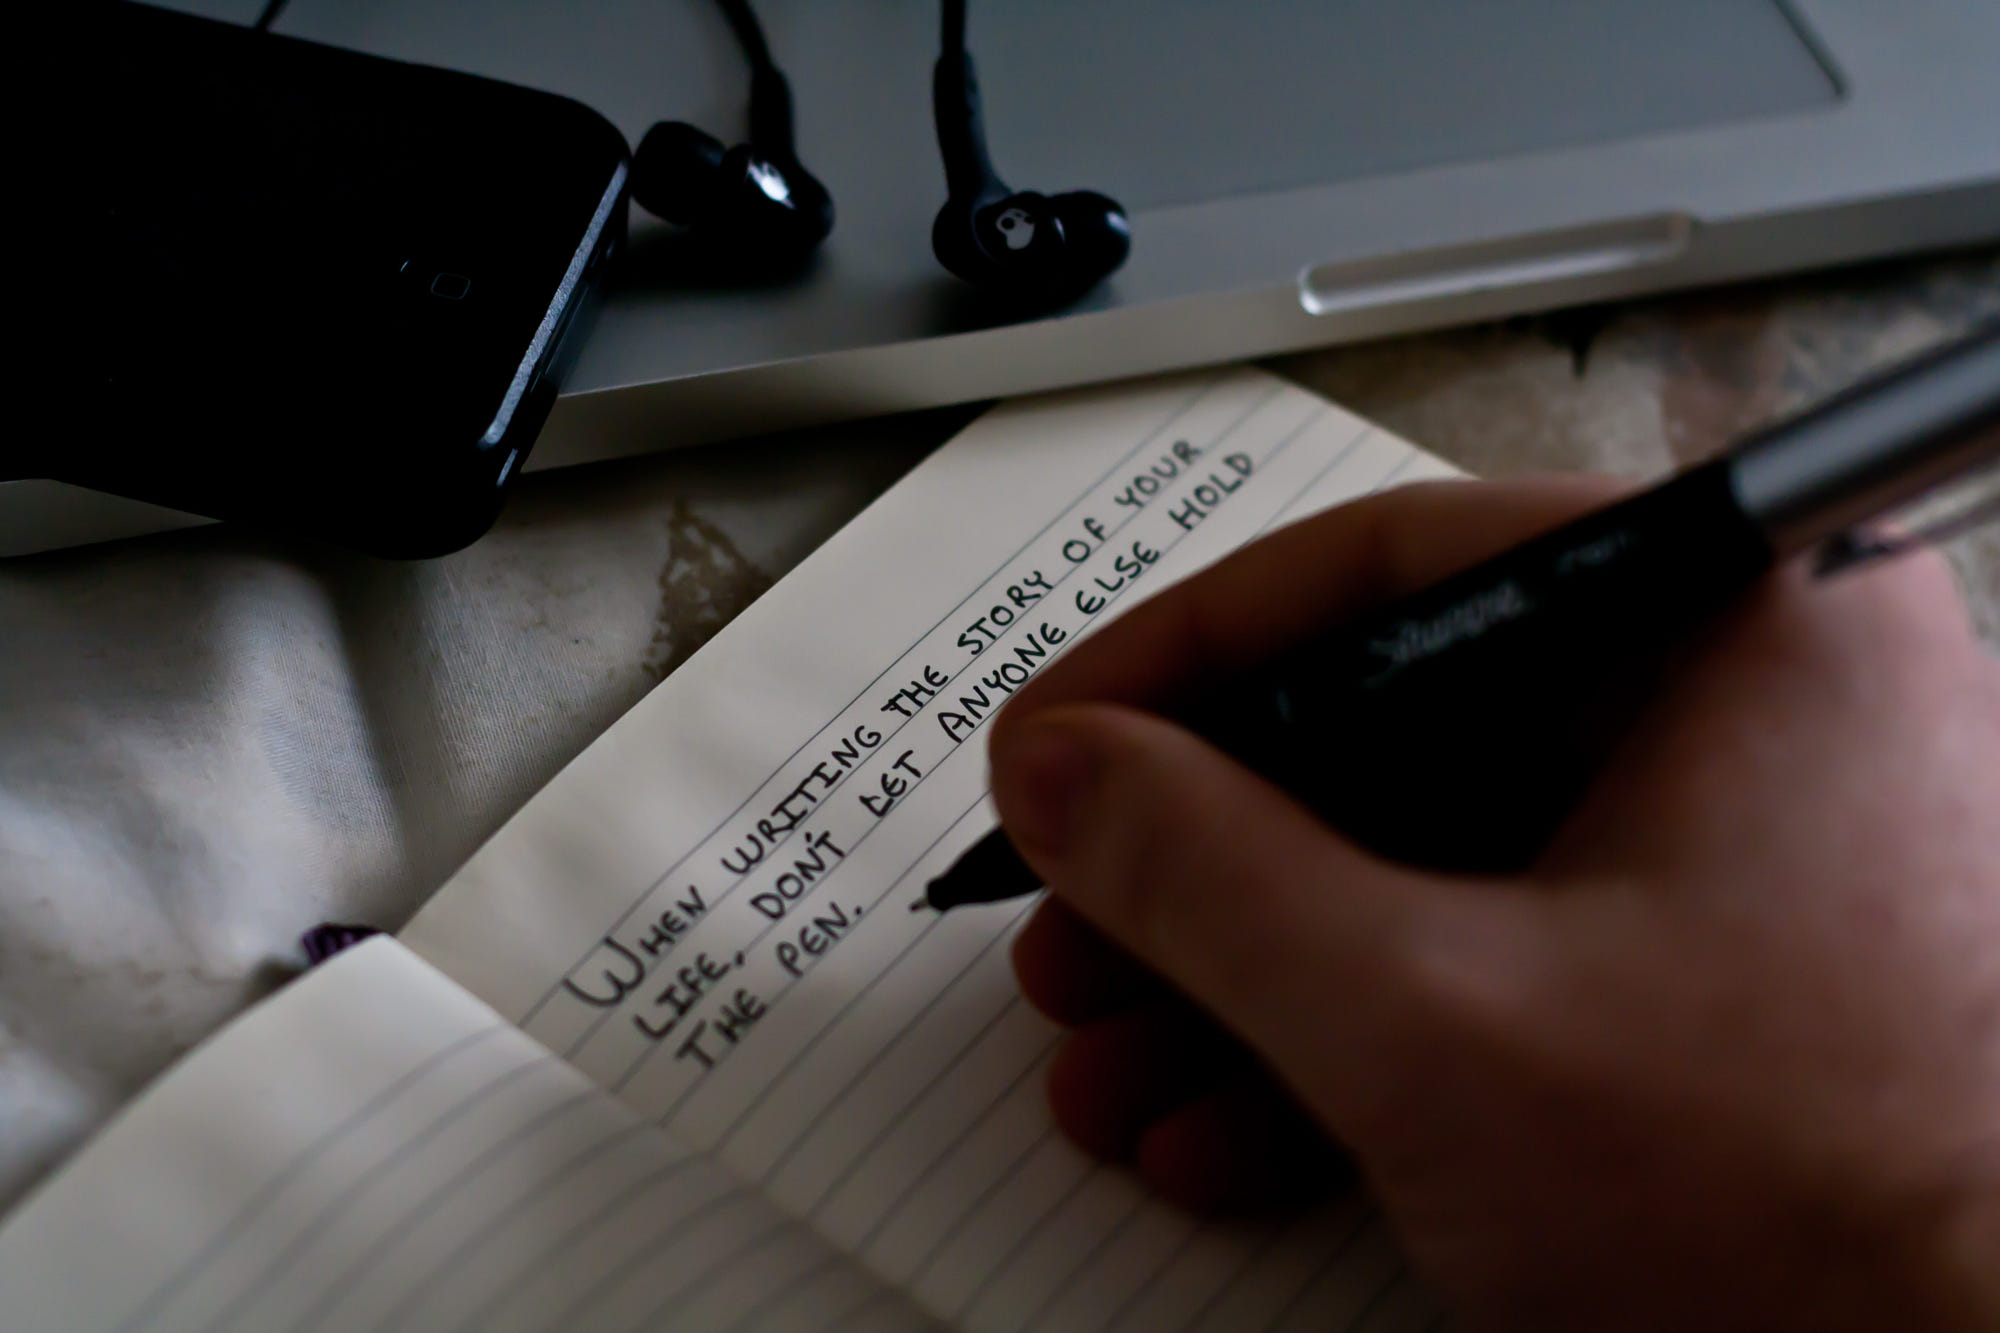 WHEN WRITING THE STORY OF YOUR
LIFE, DON'T LET ANYONE ELSE HOLD
THE PEN.